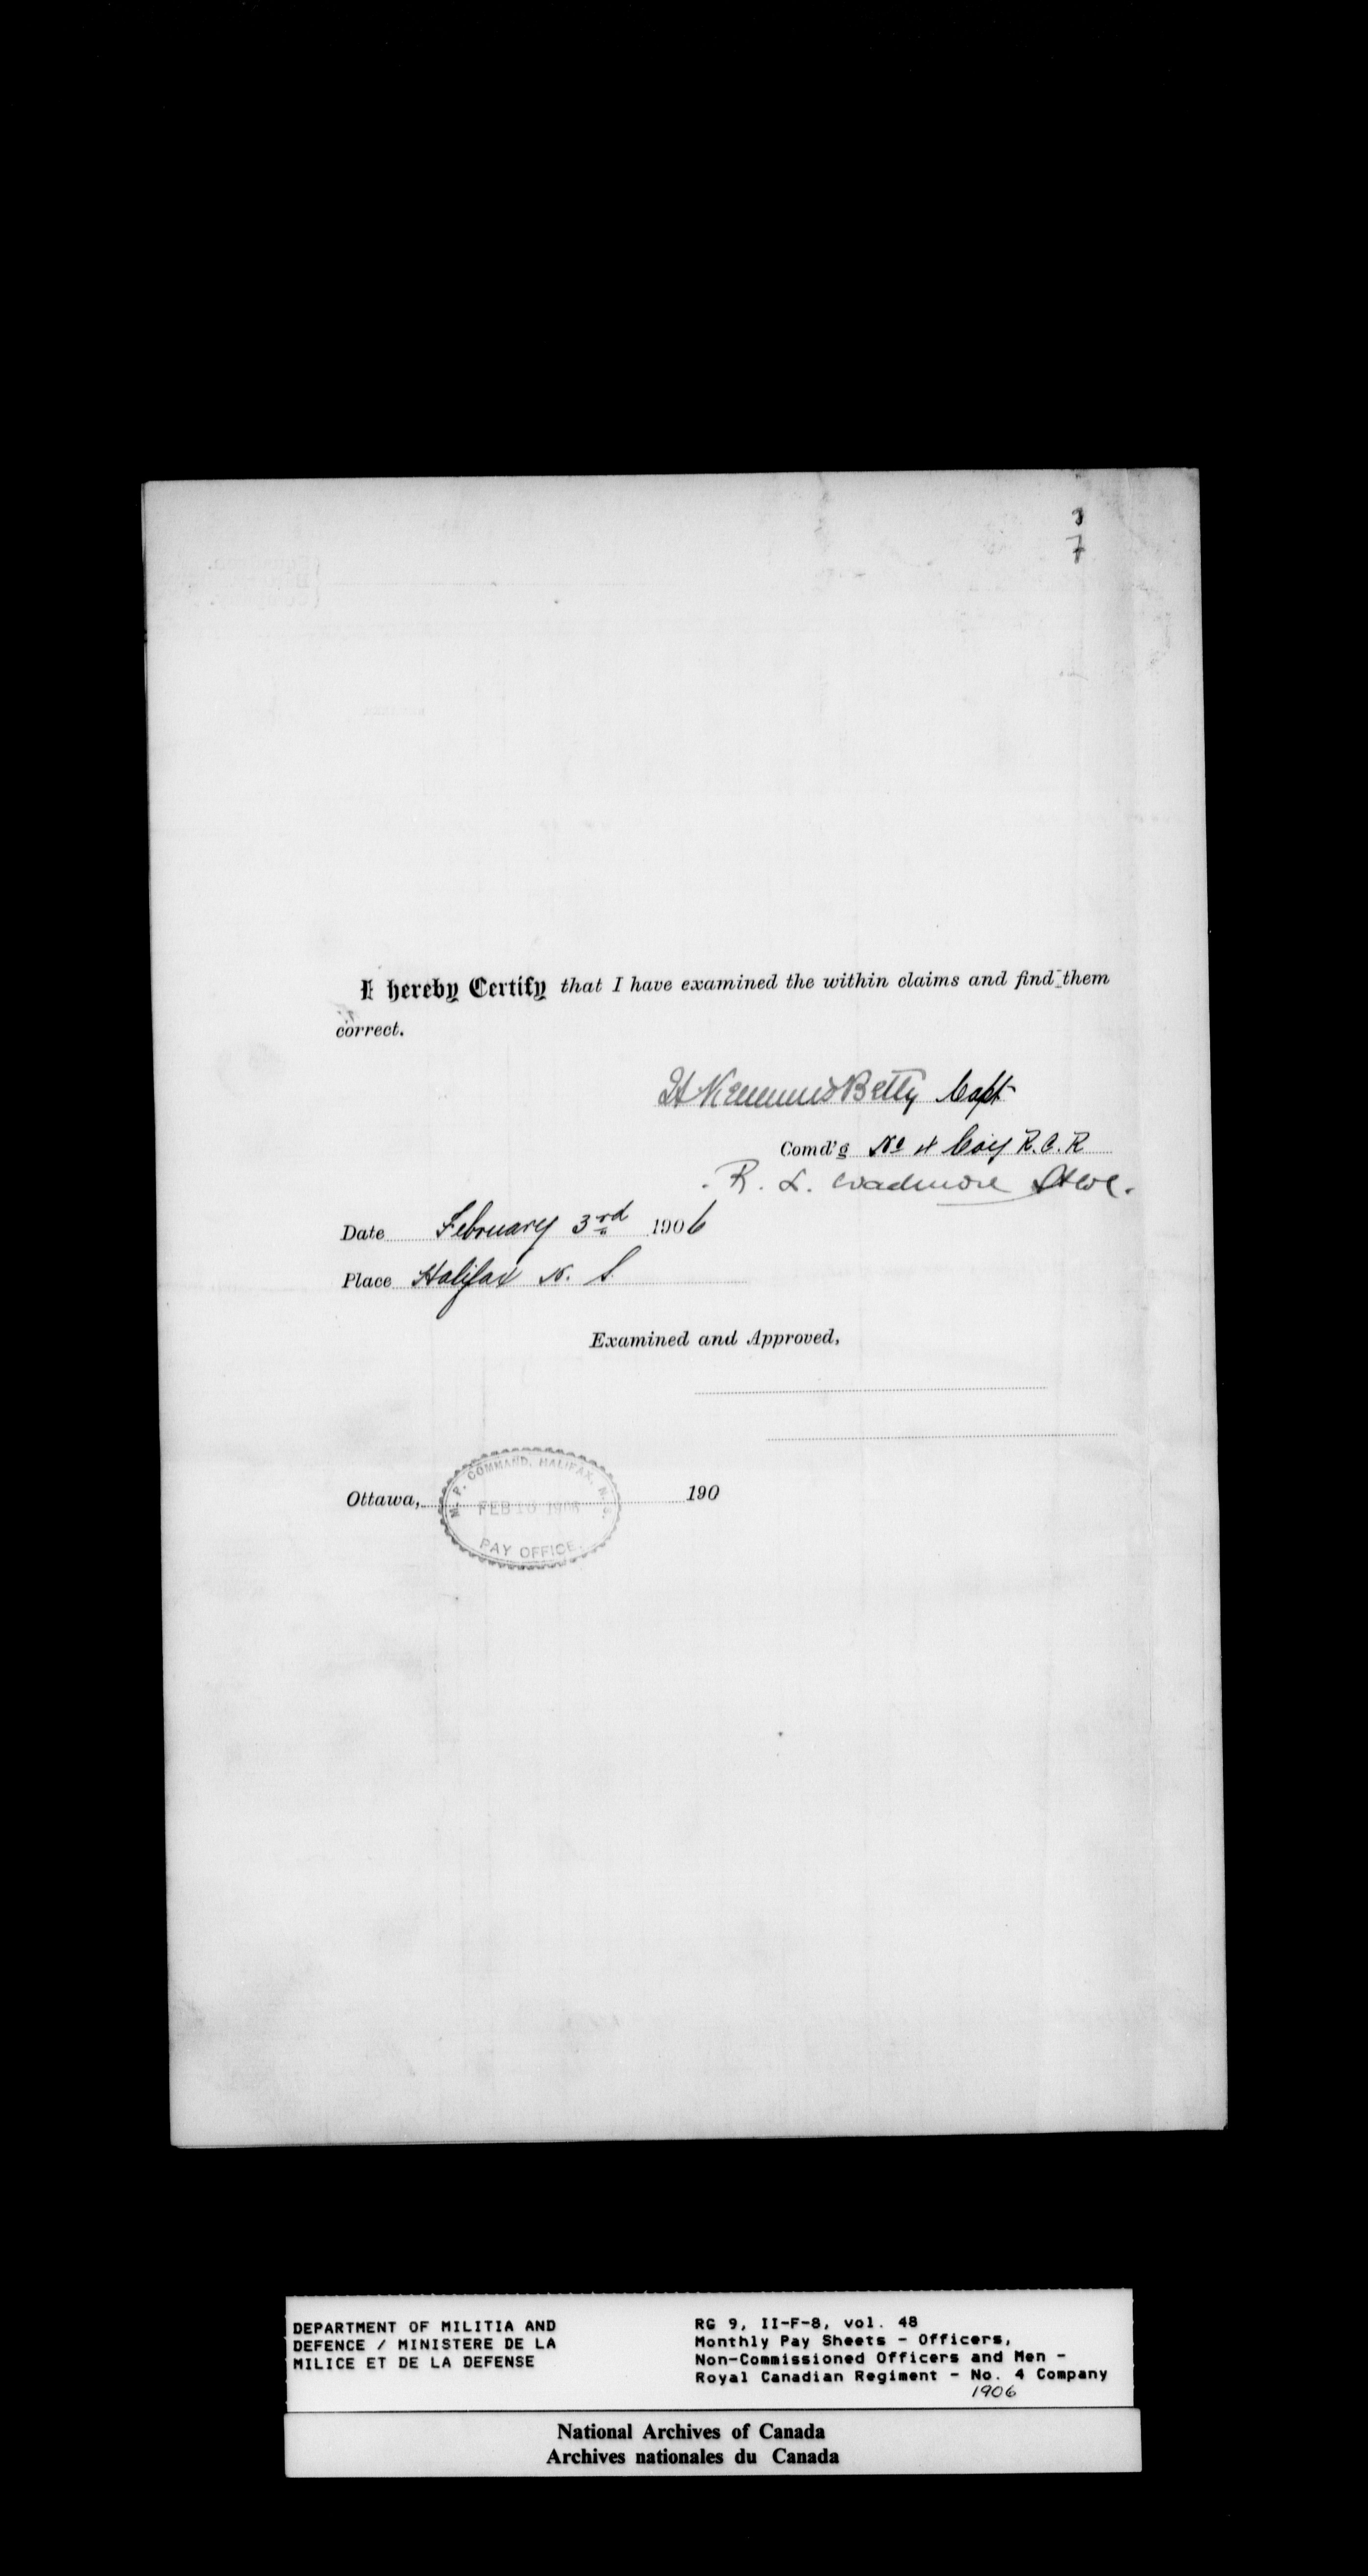 7
I hereby Certify that I have examined the within claims and find them
correct.
Betty Capt
Comd'g No 4 Coy R.C.R
R. L. Wadmore
Date February 3rd 1906
Place Halifax N. S.
Examined and Approved,
M. P. COMMAND. HALIFAX, N. S.
Ottawa, 190
FEB 10 1906
PAY OFFICE.
DEPARTMENT OF MILITIA AND
DEFENCE / MINISTERE DE LA
MILICE ET DE LA DEFENSE
RG 9, II-F-8, vol. 48
Monthly Pay Sheets - Officers,
Non-Commissioned Officers and Men -
Royal Canadian Regiment - No. 4 Company
1906
National Archives of Canada
Archives nationales du Canada